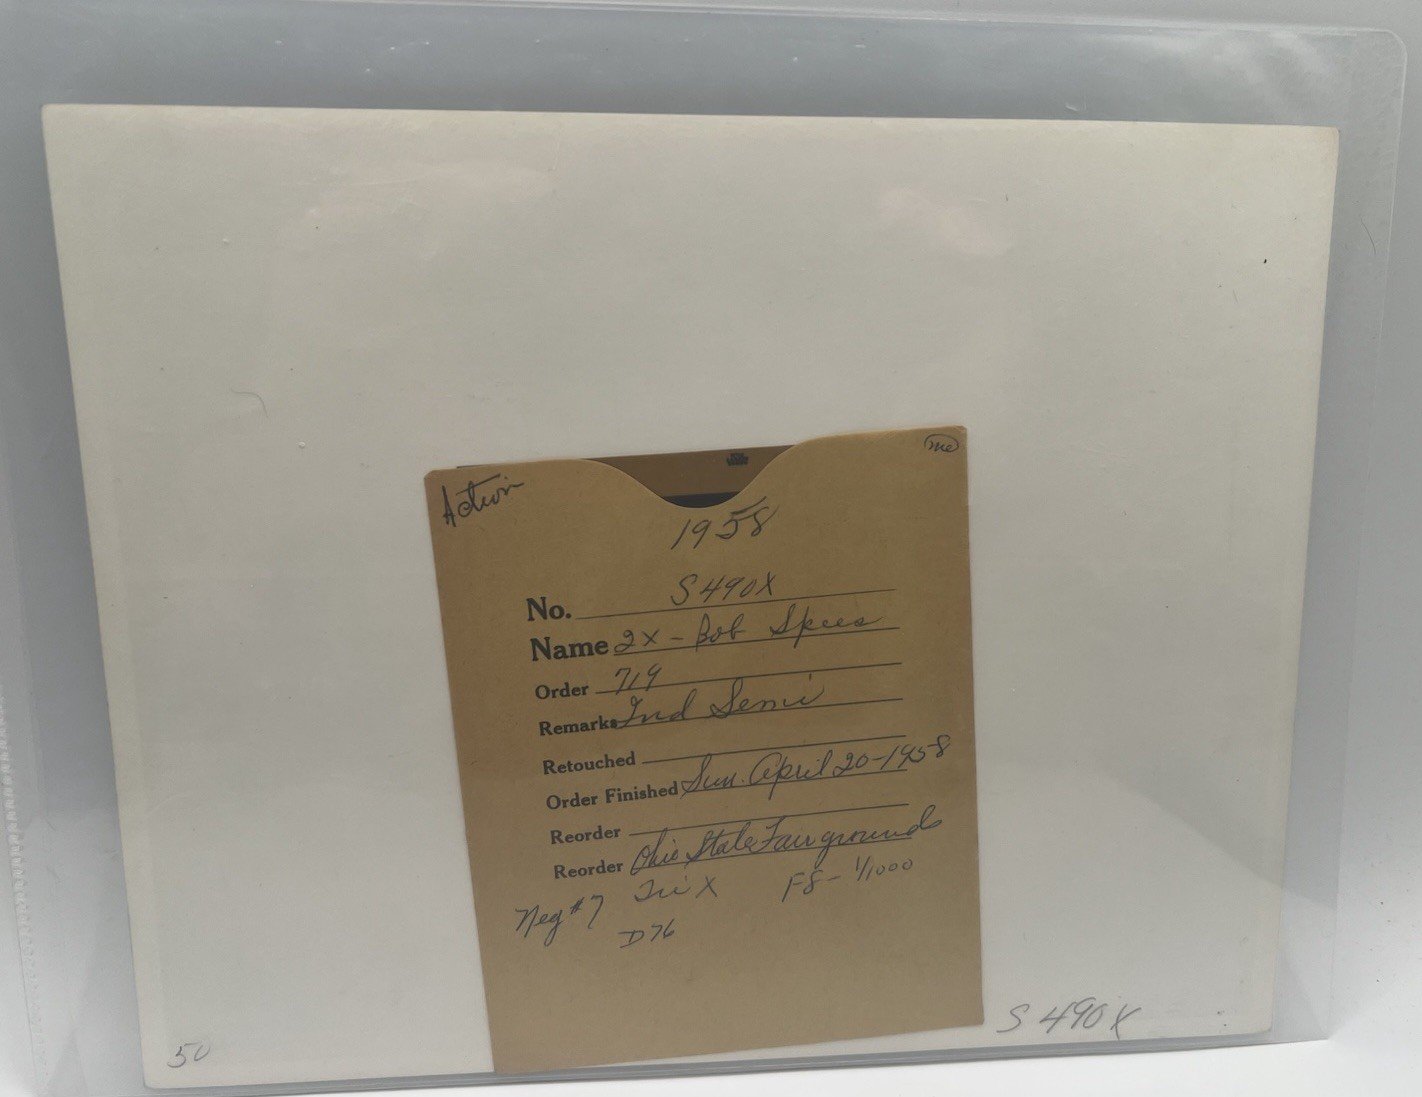 Action
me
1958
No. S490X
Name 2X - Bob Spees
Order 719
Remarks Ind Semi
Retouched
Order Finished Sun. April 20-1958
Reorder
Reorder Ohio State Fairgrounds
Neg #7 Tri X F8- 1/1000
D76
50
S 490X